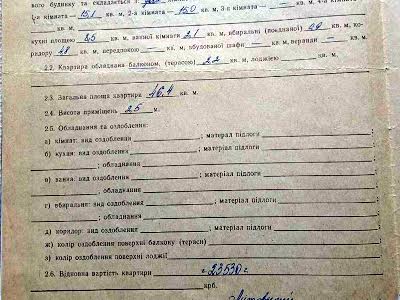 вого будинку та складається з
1-ї кімната — 15,1 кв. м, 2-а кімната — 15,0 кв. м, 3-я кімната — кв. м, 4-а кімната
— кв. м,
кухні площею 8,5 кв. м, ванної кімнати 2,1 кв. м, вбиральні (поєднаної) 0,9 кв. м, ко-
ридору 4,8 кв. м, передпокою — кв. м, вбудованої шафи — кв. м,
2.2. Квартира обладнана балконом, (терасою) 2,2 кв. м, лоджією — кв. м.
2.3. Загальна площа квартири 46,4 кв. м.
2.4. Висота приміщень 2,5 м.
2.5. Обладнання та оздоблення:
а) кімнат: вид оздоблення ; матеріал підлоги
б) кухня: вид оздоблення ; матеріал підлоги
; обладнання
в) ванна: вид оздоблення ; матеріал підлоги
; обладнання
г) вбиральня: вид оздоблення ; матеріал підлоги
; обладнання
д) коридор: вид оздоблення ; матеріал підлоги
ж) колір оздоблення поверхні балкону (тераси)
з) колір оздоблення поверхні лоджії
2.6. Відновна вартість квартири 23530
крб.